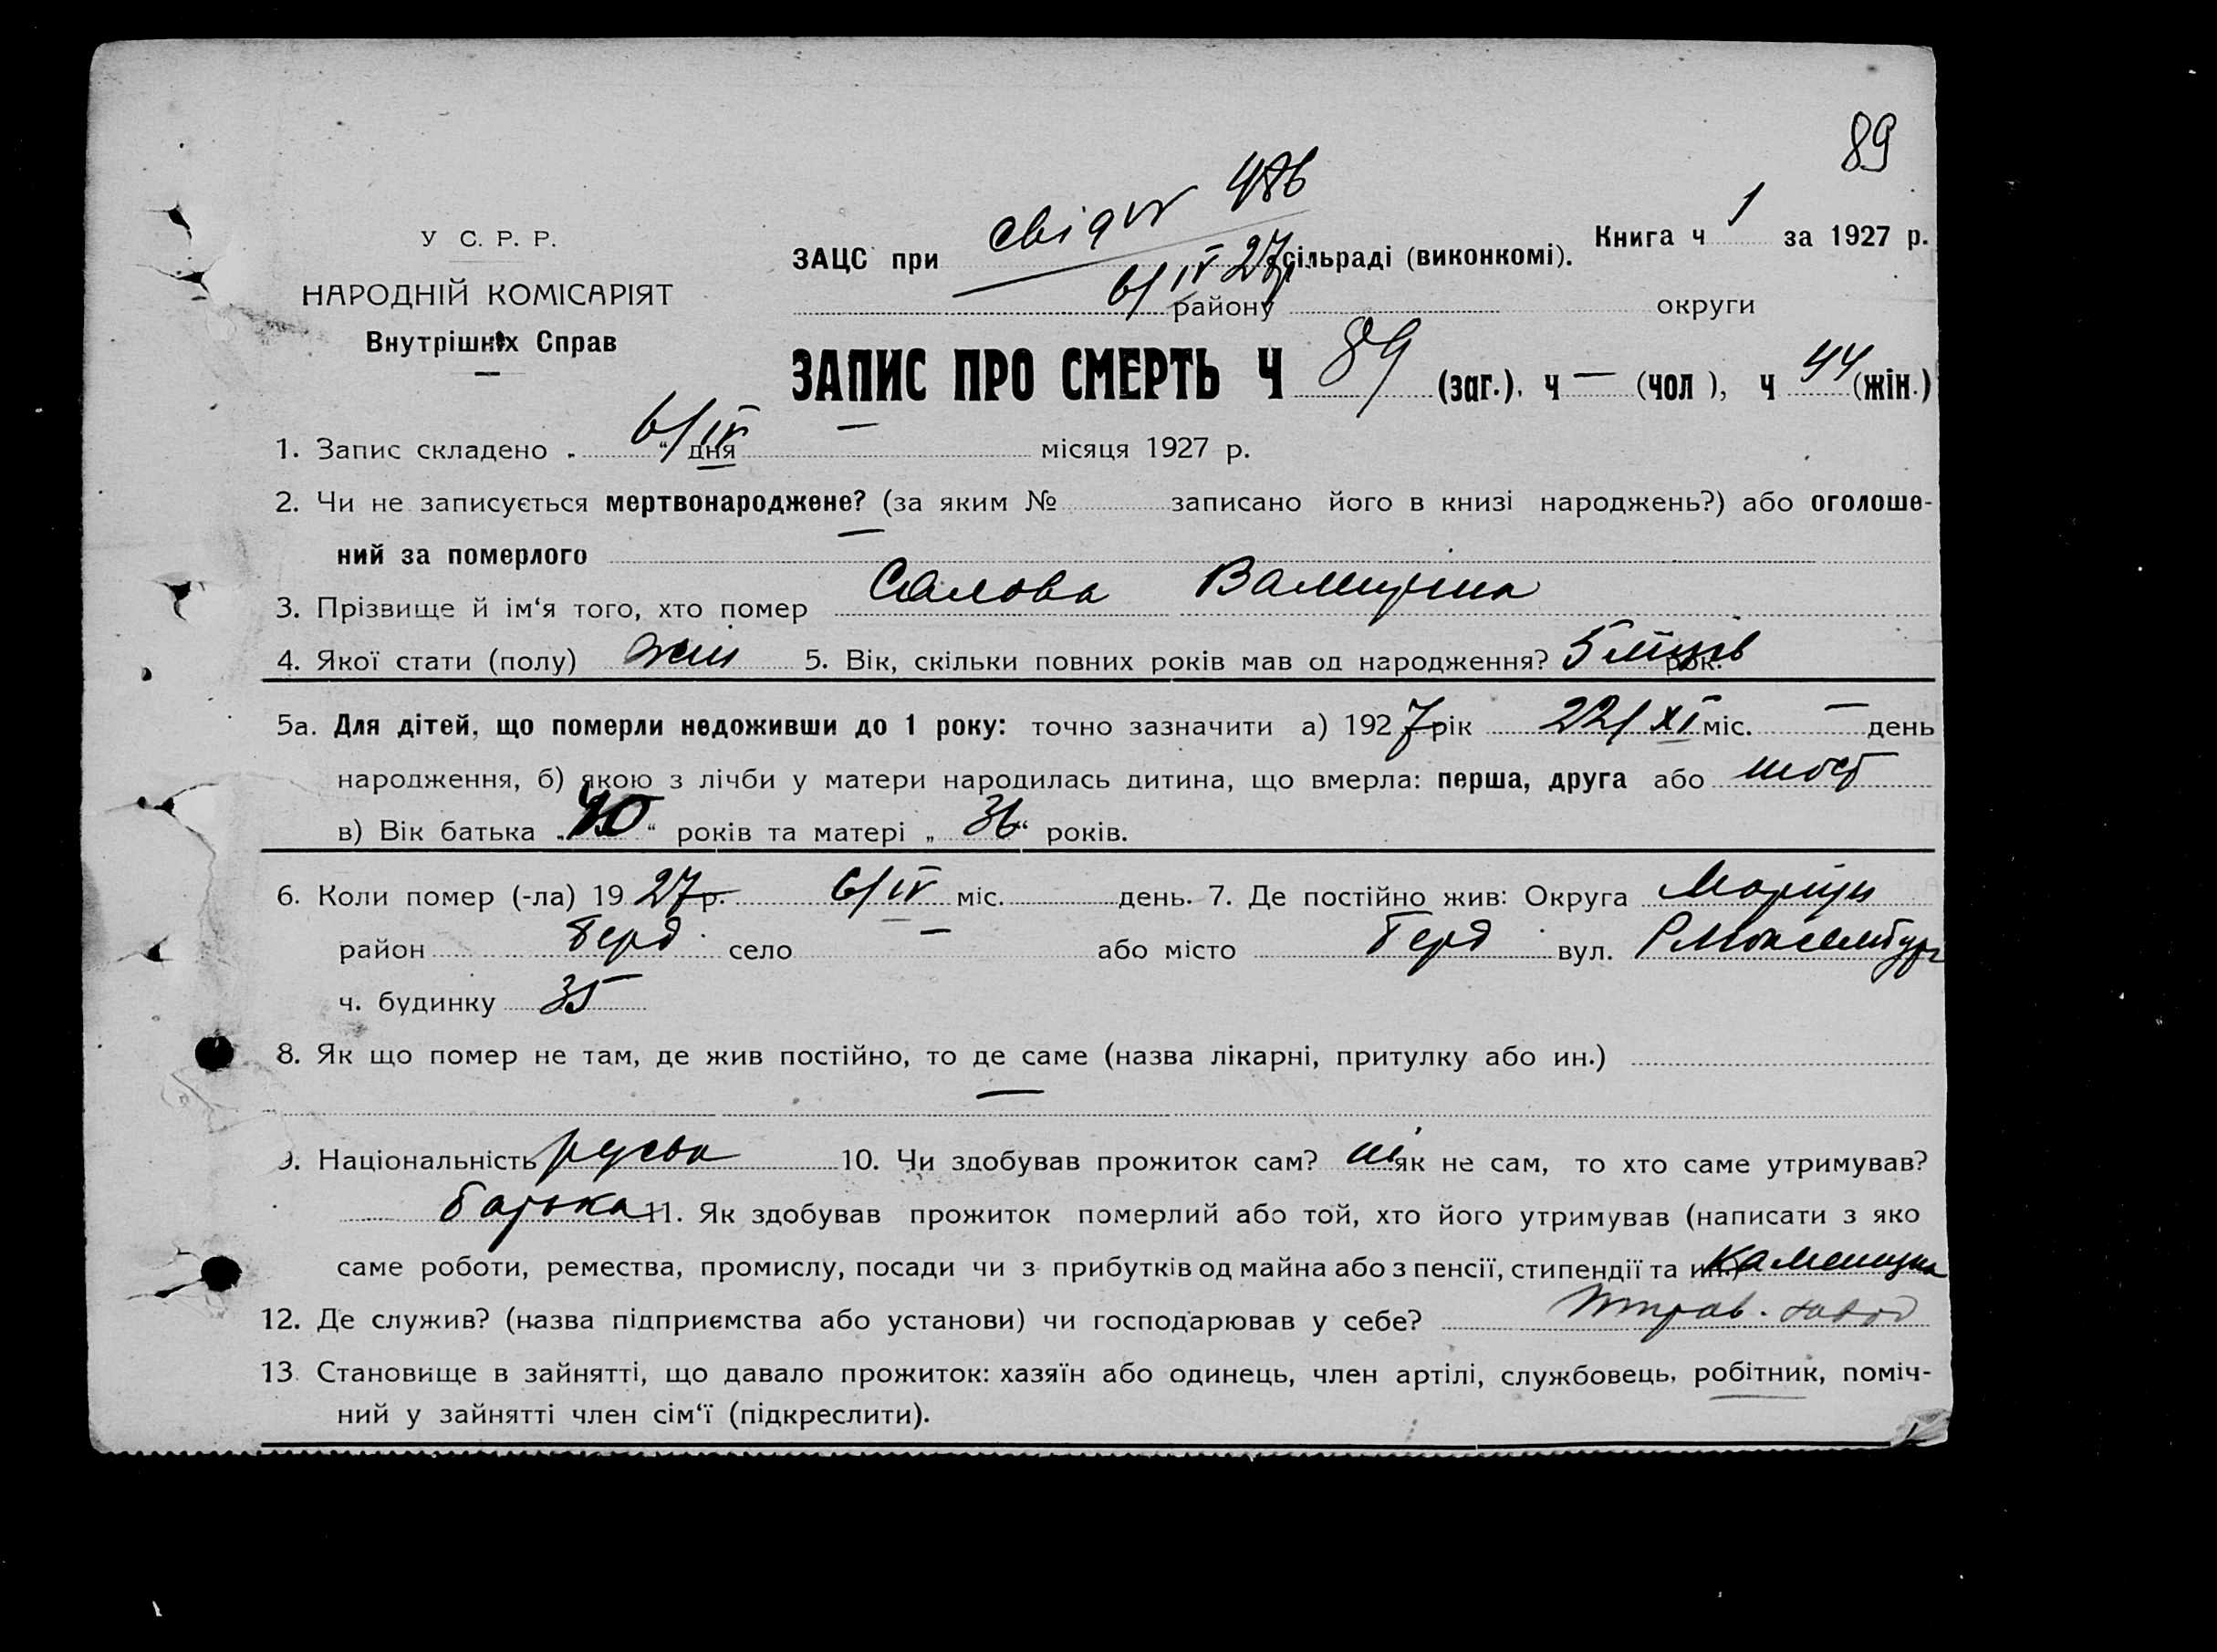 89
свідк 486
У С. Р. Р.
ЗАЦС при сільраді (виконкомі). Книга ч 1 за 1927 р.
6/IV 27р.
НАРОДНІЙ КОМІСАРІЯТ
району округи
Внутрішніх Справ
ЗАПИС ПРО СМЕРТЬ Ч 89 (заг.), ч — (чол ), ч 44 (жін.)
1. Запис складено „ 6/IV “ дня — місяця 1927 р.
2. Чи не записується мертвонароджене? (за яким № записано його в книзі народжень?) або оголоше-
ний за померлого —
3. Прізвище й ім‘я того, хто помер Салова Валентина
4. Якої стати (полу) жін 5. Вік, скільки повних років мав од народження? 5 місців рок.
5а. Для дітей, що померли недоживши до 1 року: точно зазначити а) 1927 рік 22/XI міс. — день
народження, б) якою з лічби у матери народилась дитина, що вмерла: перша, друга або шост
в) Вік батька „40“ років та матері „36“ років.
6. Коли помер (-ла) 1927 р. 6/IV міс. день. 7. Де постійно жив: Округа Маріуп
район Берд. село — або місто Берд вул. Р Люксембург
ч. будинку 35
8. Як що помер не там, де жив постійно, то де саме (назва лікарні, притулку або ин.)
—
9. Національність руська 10. Чи здобував прожиток сам? ні як не сам, то хто саме утримував?
батька 11. Як здобував прожиток померлий або той, хто його утримував (написати з яко
саме роботи, ремества, промислу, посади чи з прибутків од майна або з пенсії, стипендії та ин.)
12. Де служив? (назва підприємства або установи) чи господарював у себе? завод
13. Становище в зайнятті, що давало прожиток: хазяїн або одинець, член артілі, службовець, робітник, поміч-
ний у зайнятті член сім‘ї (підкреслити).